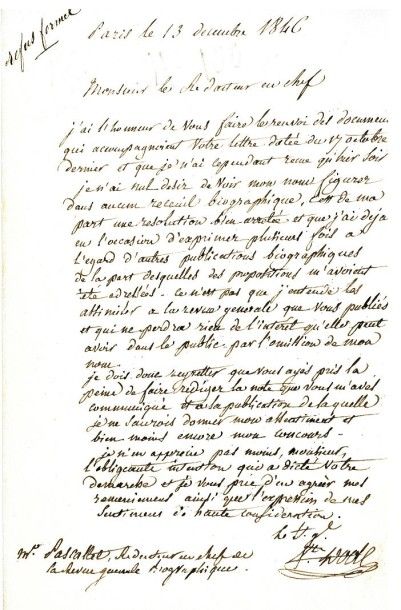 refus formel
Paris le 13 decembre 1846
Monsieur le Redacteur en chef
j'ai l'honneur de vous faire le renvoi des documens
qui accompagnoient votre lettre datée du 17 octobre
dernier et que je n'ai cependant recue qu'hier soir
je n'ai nul desir de voir mon nom figurer
dans aucun receuil biographique, c'est de ma
part une resolution bien arretée et que j'ai deja
eu l'occasion d'exprimer plusieurs fois a
l'egard d'autres publications biographiques
de la part desquelles des propositions m'avoient
été adressées. ce n'est pas que j'entende les
assimiler a la revue generale que vous publiés
et qui ne perdra rien de l'interêt qu'elle peut
avoir dans le public par l'omission de mon
nom.
je dois donc regretter que vous ayés pris la
peine de faire rediger la note que vous m'avés
communiqué et a la publication de laquelle
je ne saurois donner mon assentiment et
bien moins encore mon concours.
je n'en apprecie pas moins, monsieur,
l'obligeante intention qui a dicté votre
demarche et je vous prie d'en agréer mes
remerciemens ainsi que l'expression de mes
sentimens de haute consideration.
le
Mr. Pascallet, Redacteur en chef de
la Revue generale biographique.